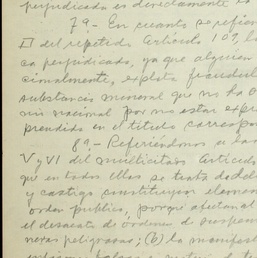 perjudicada es directamente la
7ª.- En cuanto se refiere
II del repetido Artículo 109, la
ca perjudicado, ya que alguien
cionalmente, explota fraudul
substancia mineral que no ha o
nio nacional por no estar expre
prendido en el título correspo
8ª.- Refiriéndonos a las
V y VI del multicitado Artículo
que en todas ellas se trata de del
y castigo constituyen elemen
orden público, porque afectan al
el desacato de órdenes de suspen
neras peligrosas; (b) la manifest